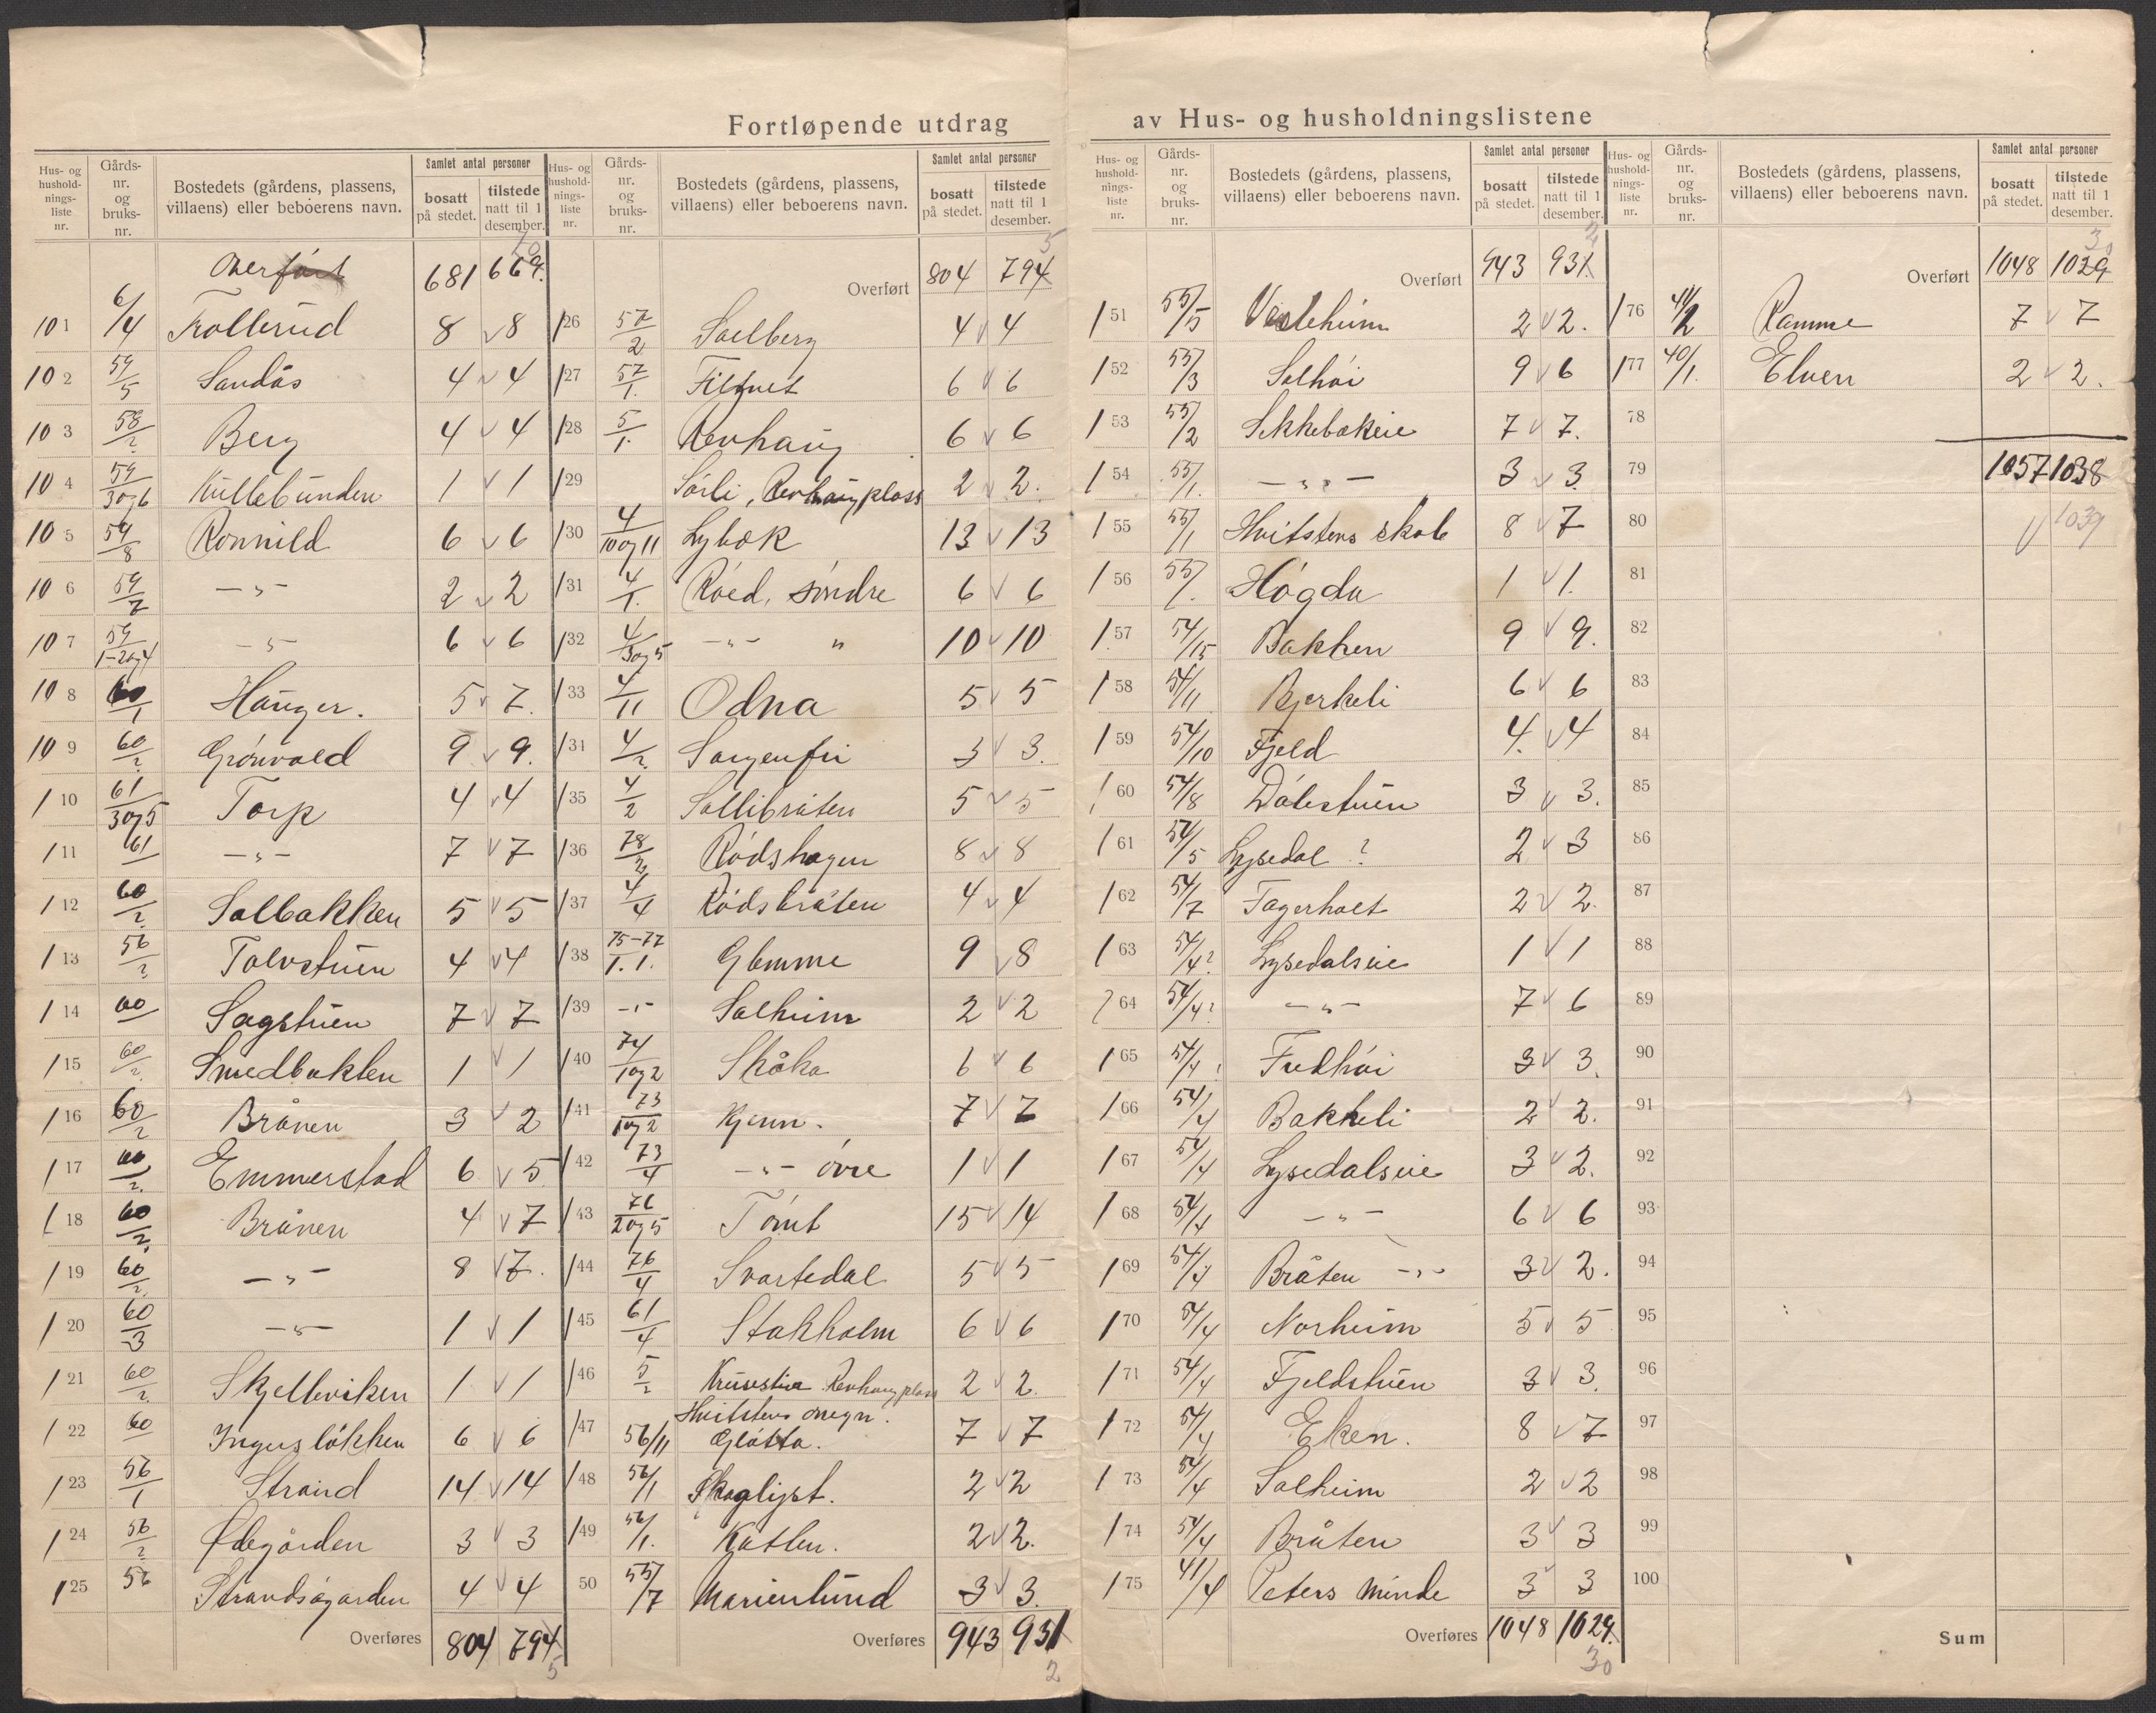 Fortløpende utdrag av Hus- og husholdningslistene
Hus- og husholdningsliste nr. | Gårds-nr. og bruks-nr. | Bostedets (gårdens, plassens, villaens) eller beboerens navn. | Samlet antal personer | bosatt på stedet. | tilstede natt til 1 desember.
Overført 681 669. 70
101 6/4 Trollerud 8 v 8
102 59/5 Sandås 4 v 4
103 58/2 Berg 4 v 4
104 59/3og6 Kullebunden 1 v 1
105 59/8 Ronnild 6 v 6
106 59/7 -"- 2 v 2
107 59/1-2og4 -"- 6 v 6
108 60/1 Hauger. 5 v 7.
109 60/2 Grönvold 9 v 9.
110 61/3og5 Torp 4 v 4
111 61 -"- 7 v 7
112 60/2 Solbakken 5 v 5
113 56/2 Tolvstuen 4 v 4
114 60 Sagstuen 7 v 7
115 60/2 Smedbakken 1 v 1
116 60/2 Brånen 3 v 2
117 60/2. Emmerstad 6 v 5
118 60/2. Brånen 4 v 7
119 60/2. -"- 8 v 7.
120 60/3 -"- 1 v 1
121 60/2 Skjelleviken 1 v 1
122 60 Ingerslökken 6 v 6
123 56/1 Strand 14 v 14
124 56/2 Ødegården 3 v 3
125 56 Strandsågarden 4 v 4
Overføres 804 794 5
Hus- og husholdningsliste nr. | Gårds-nr. og bruks-nr. | Bostedets (gårdens, plassens, villaens) eller beboerens navn. | Samlet antal personer | bosatt på stedet. | tilstede natt til 1 desember.
Overført 804 794 5
126 57/2 Solberg 4 v 4
127 57/1. Filtvet 6 v 6
128 5/1. Revhaug 6 v 6
129 Sörli, Revhaug plass 2 v 2.
130 4/10og11 Lybæk 13 v 13
131 4/1. Röed, söndre 6 v 6
132 4/3og5 -"- " 10 v 10
133 4/11 Odna 5 v 5
134 4/2. Sorgenfri 3 v 3.
135 4/2 Sollibråten 5 v 5
136 78/2 Rödshagen 8 v 8
137 4/4 Rödsbråten 4 v 4
138 75-77/1.1. Glemme 9 v 8
139 -"- Solheim 2 v 2
140 74/1og2 Skåka 6 v 6
141 73/1og2 Kjenn. 7 v 7
142 73/4 -"- övre 1 v 1
143 76/2og5 Tömt 15 v 14
144 76/4 Svartedal 5 v 5
145 61/4 Stokholm 6 v 6
146 5/2 Revhaug plass 2 v 2.
Hvitstens omegn.
147 56/11 Glötta. 7 v 7
148 56/1 Skoglyst. 2 v 2
149 56/1. Katlen. 2 v 2.
50 55/7 Marienlund 3 v 3.
Overføres 943 931 2
Hus- og husholdningsliste nr. | Gårds-nr. og bruks-nr. | Bostedets (gårdens, plassens, villaens) eller beboerens navn. | Samlet antal personer | bosatt på stedet. | tilstede natt til 1 desember.
Overført 943 931 2
151 55/5 Vestheim 2 v 2.
152 55/3 Solhöi 9 v 6
153 55/2 Sekkebækeie 7 v 7.
154 55/1. -"- 3 v 3.
155 55/1 Hvitstens skole 8 v 7
156 55/. Högda 1 v 1.
157 54/15 Bakken 9 v 9.
158 54/11 Bjerkeli 6 v 6
159 54/10 Fjeld 4. v 4
160 54/8 Dölestuen 3 v 3.
161 54/5 Lysedal ? 2 v 3
162 54/7 Fagerholt 2 v 2.
163 54/4? Lysedalseie 1 v 1
164 54/4? -"- 7 v 6
165 54/4? Fredhöi 3 v 3.
166 54/4 Bakkeli 2 v 2.
167 54/4 Lysedalseie 3 v 2.
168 54/4 -"- 6 v 6
169 54/4 Bråten -"- 3 v 2.
170 54/4 Norheim 5 v 5
171 54/4 Fjeldstuen 3 v 3.
172 54/4 Eken. 8 v 7
173 54/4 Solheim 2 v 2
174 54/4 Bråten 3 v 3
175 41/4 Peters minde 3 v 3
Overføres 1048 1029. 30
Hus- og husholdningsliste nr. | Gårds-nr. og bruks-nr. | Bostedets (gårdens, plassens, villaens) eller beboerens navn. | Samlet antal personer | bosatt på stedet. | tilstede natt til 1 desember.
Overført 1048 1029 30
176 41/2 Ramme 7 v 7
177 40/1. Elven 2 v 2.
78
79 1057 1038
80 v 1039
81
82
83
84
85
86
87
88
89
90
91
92
93
94
95
96
97
98
99
100
Sum